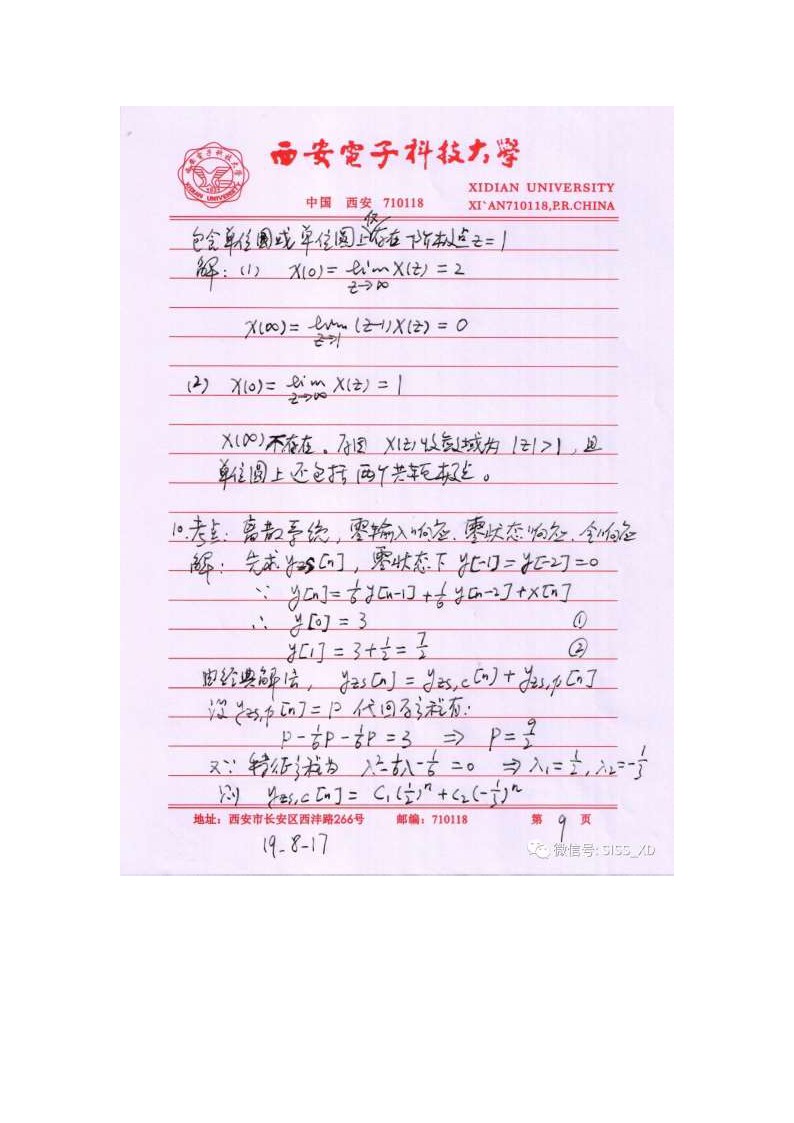 西安電子科技大學
XIDIAN UNIVERSITY
中国 西安 710118
XI`AN710118,P.R.CHINA
包含单位圆或单位圆上仅存在一阶极点z=1
解：(1) x(0)=lim X(z)=2
z→∞
x(∞)=lim (z-1)X(z)=0
z→1
(2) x(0)=lim X(z)=1
z→∞
x(∞)不存在。原因 X(z)收敛域为 |z|>1，且
单位圆上还包括两个共轭极点。
10.考点：离散系统，零输入响应.零状态响应.全响应
解：先求yzs[n]，零状态下 y[-1]=y[-2]=0
∵ y[n]=1/6 y[n-1]+1/6 y[n-2]+x[n]
∴ y[0]=3 ①
y[1]=3+1/2=7/2 ②
由经典解法， yzs[n]=yzs,c[n]+yzs,p[n]
设yzs,p[n]=P 代回方程有：
P-1/6P-1/6P=3 ⇒ P=9/2
又∵ 特征方程为 λ²-1/6λ-1/6=0 ⇒λ₁=1/2,λ₂=-1/3
则 yzs,c[n]=C₁(1/2)ⁿ+C₂(-1/3)ⁿ
地址：西安市长安区西沣路266号 邮编：710118 第 9 页
19-8-17
微信号: SISS_XD